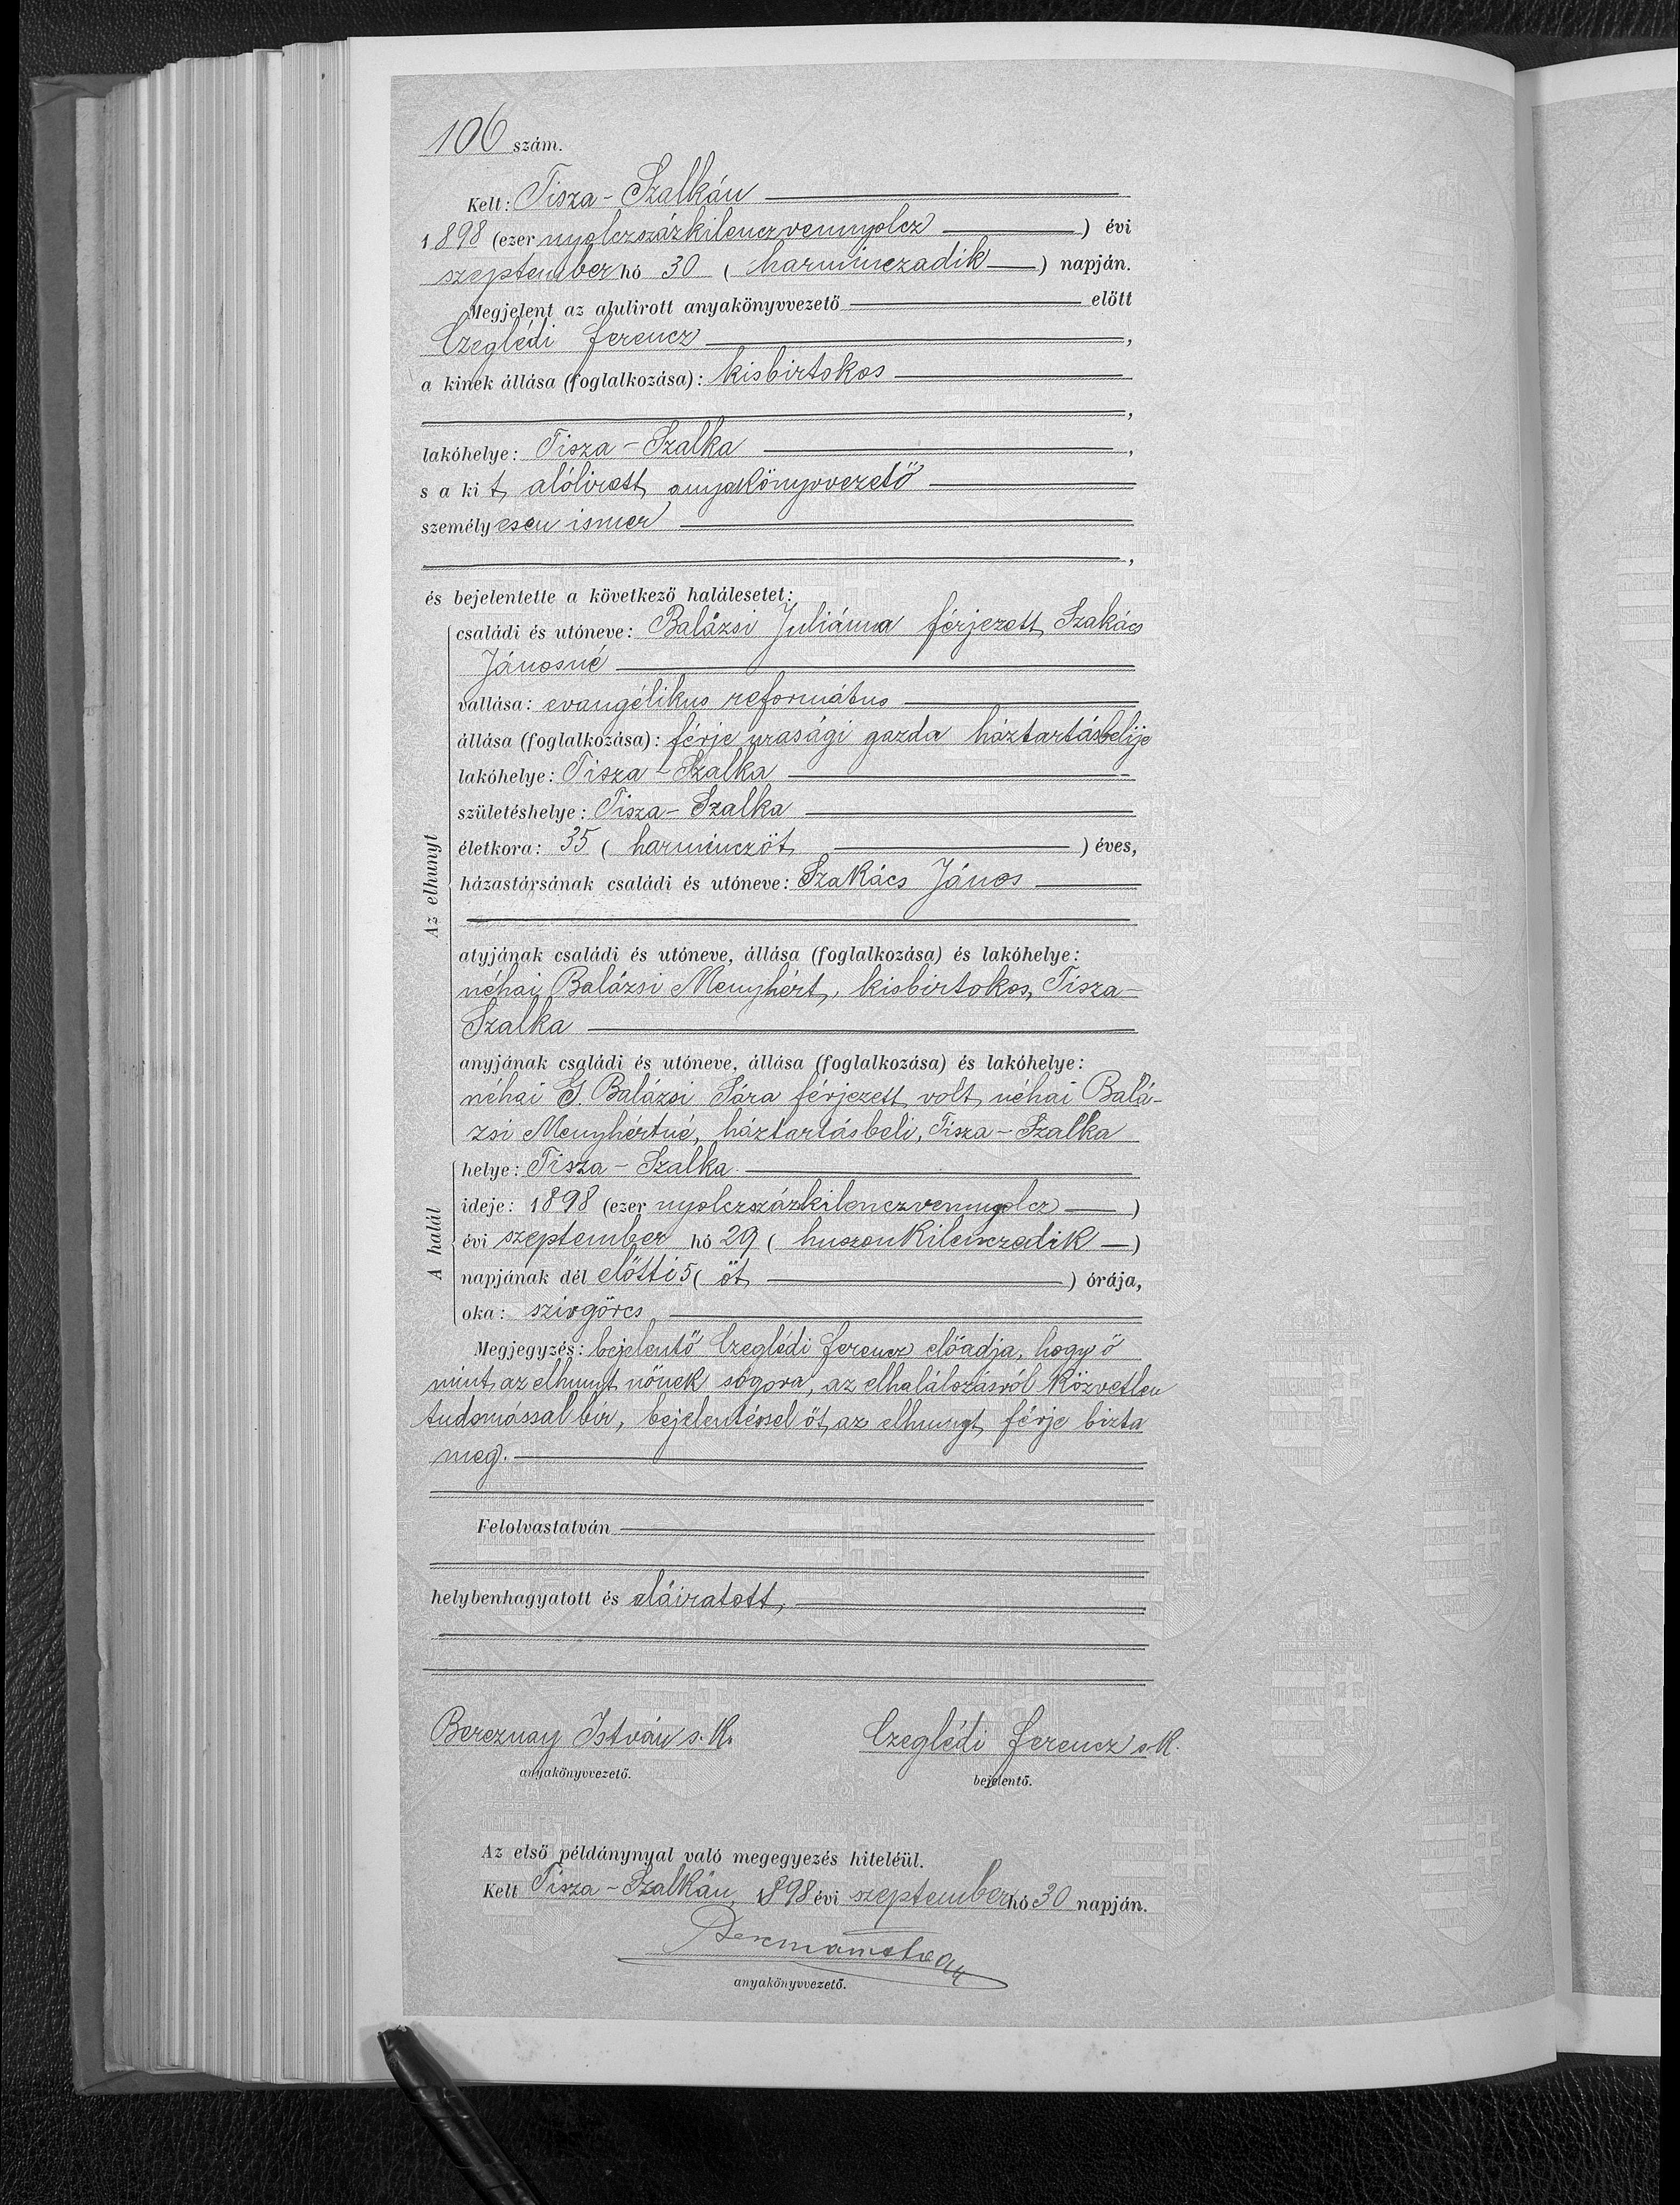 106 szám.
Kelt: Tisza-Szalkán
1898 (ezer nyolczszázkilenczvennyolcz) évi
szeptember hó 30 (harminczadik) napján.
Megjelent az alulirott anyakönyvvezető előtt
Czeglédi Ferencz,
a kinek állása (foglalkozása): kisbirtokos
,
lakóhelye: Tisza-Szalka,
s a kit alólirott anyakönyvvezető
személyesen ismer
,
és bejelentette a következő halálesetet:
Az elhunyt
családi és utóneve: Balázsi Juliánna férjezett Szakács
Jánosné
vallása: evangélikus református
állása (foglalkozása): férje urasági gazda háztartásbelije
lakóhelye: Tisza-Szalka
születéshelye: Tisza-Szalka
életkora: 35 (harminczöt) éves,
házastársának családi és utóneve: Szakács János
atyjának családi és utóneve, állása (foglalkozása) és lakóhelye:
néhai Balázsi Menyhért, kisbirtokos, Tisza-
Szalka
anyjának családi és utóneve, állása (foglalkozása) és lakóhelye:
néhai G. Balázsi Sára férjezett volt néhai Balá-
zsi Menyhértné, háztartásbeli, Tisza-Szalka
A halál
helye: Tisza-Szalka
ideje: 1898 (ezer nyolczszázkilenczvennyolcz)
évi szeptember hó 29 (huszonkilenczedik)
napjának dél előtti 5 (öt) órája,
oka: szivgörcs
Megjegyzés: bejelentő Czeglédi Ferencz előadja, hogy ő
mint az elhunyt nőnek sógora, az elhalálozásról közvetlen
tudomással bír, bejelentéssel őt az elhunyt férje bizta
meg.
Felolvastatván
helybenhagyatott és aláiratott,
Bereznay István s. k. Czeglédi Ferencz s. k.
anyakönyvvezető. bejelentő.
Az első példánynyal való megegyezés hiteléül.
Kelt Tisza-Szalkán, 1898 évi szeptember hó 30 napján.
anyakönyvvezető.